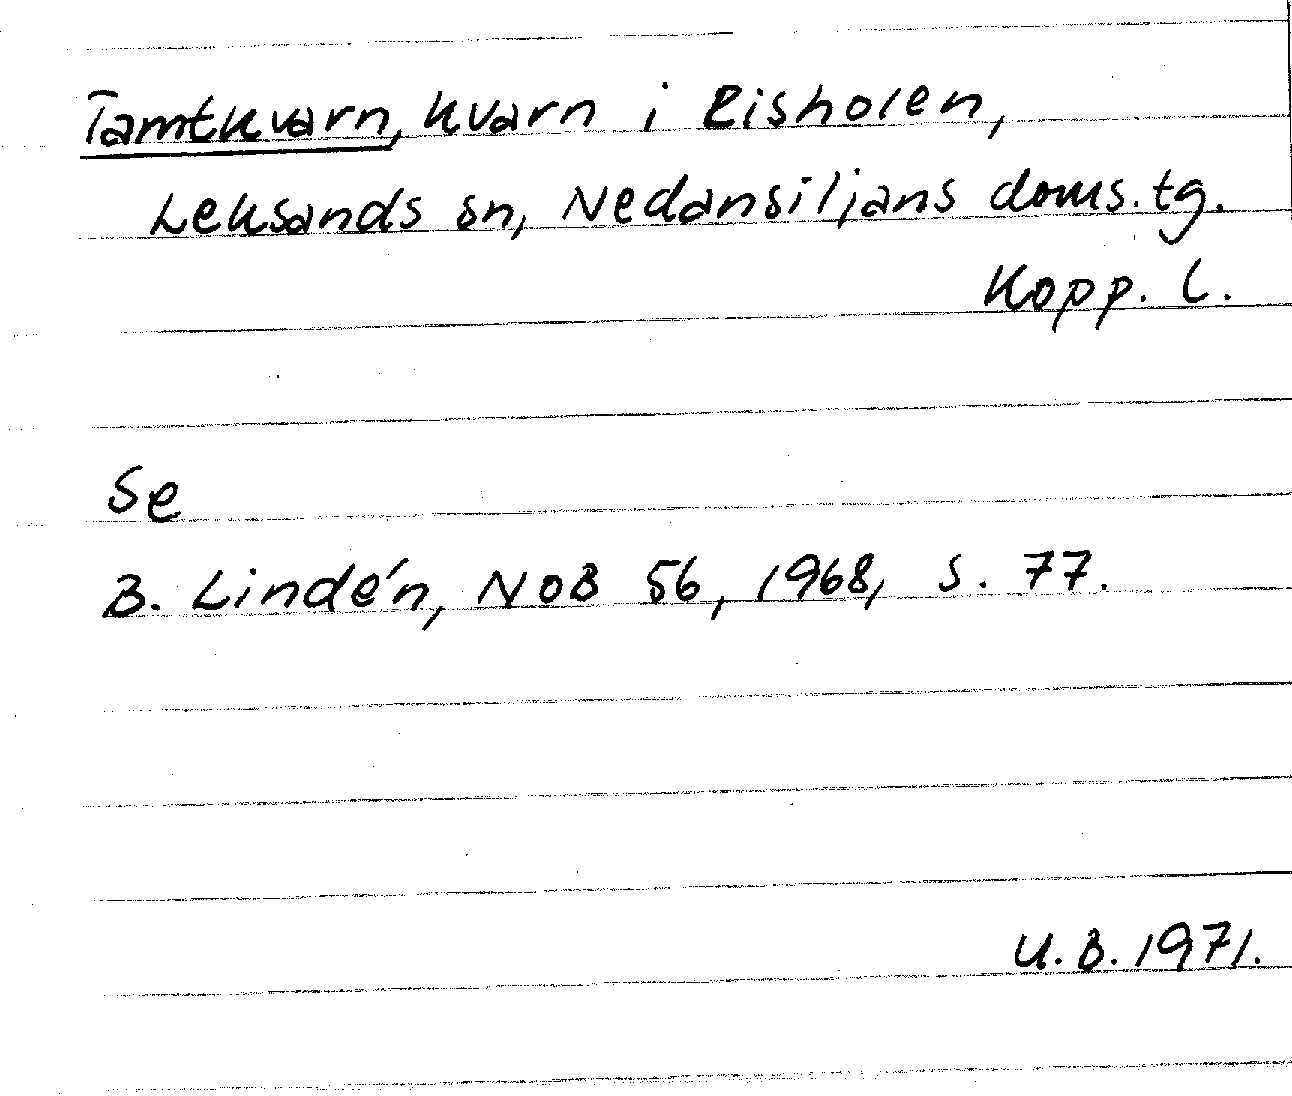 Tamtkvarn, kvarn i Risholen,
Leksands sn, Nedansiljans doms. tg.
Kopp. l.
Se
B. Lindén, NoB 56, 1968, s. 77.
U.B. 1971.